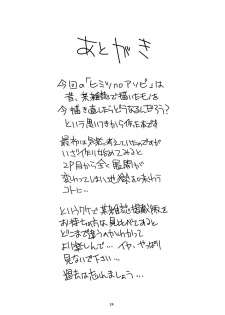 あとがき
今回の「ヒミツnoアソビ」は
昔、某雑誌で描いたモノを
今描き直したらどうなるんだろう?
という思いつきから作った本です
最初は気楽に考えていたのですが
いざ作り始めてみると
2P目から全く展開が
変わってしまい地獄を味わう
コトに…
というワケで某雑誌掲載版を
お持ちの方は見くらべてみると
どこまで違うのかわかって
より楽しんで…イヤ、やっぱり
見ないで下さい…
過去は忘れましょう…